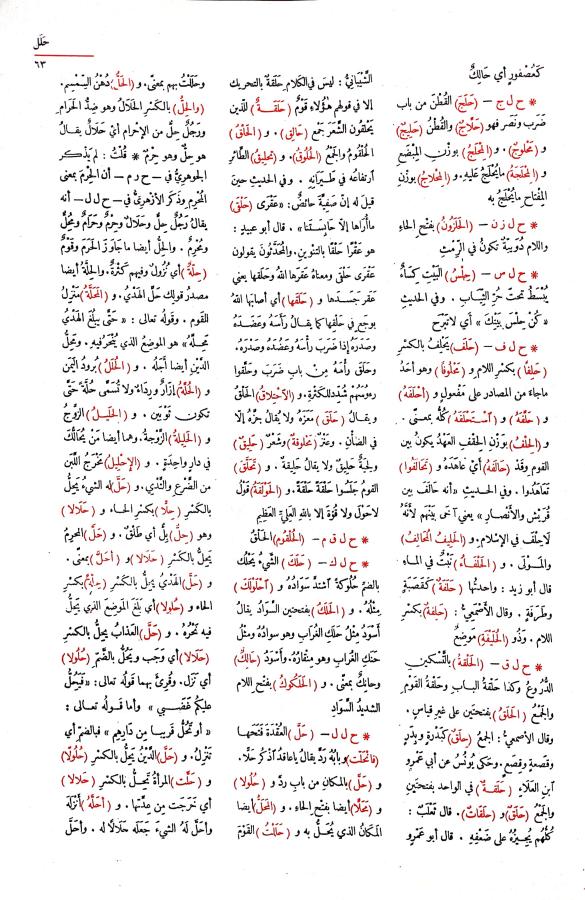 حلل
٦٣
كَعُصْفورٍ أي حَالِكٌ
* ح ل ج – (حَلَجَ) القُطْنَ من باب
ضَرَب ونَصَر فهو (حَلّاجٌ) والقُطْنُ (حَلِيجٌ)
و (مَحْلوجٌ) . و (المِحْلَجُ) بوزْنِ المِبْضَعِ
و (المِحْلَجَةُ) مايُحْلَجُ عَليهِ . و (المِحْلاجُ) بوزْنِ
المِفْتاح مايُحْلَجُ به
* ح ل ز ن – (الحَلَزُونُ) بفتح الحاءِ
واللام دُوَيْبَّةٌ تكونُ في الرِّمْثِ
* ح ل س – (حِلْسُ) البَيْتِ كِساءٌ
يُبْسَطُ تحتَ حُرِّ الثِّيَابِ . وفي الحديثِ
« كُنْ حِلْسَ بَيْتِكَ » أي لا تَبْرَحْ
* ح ل ف – (حَلَفَ) يَحْلِفُ بالكَسْرِ
(حَلِفاً) بكَسْرِ اللام و (مَحْلُوفاً) وهو أحَدُ
ماجاءَ من المصادر على مَفْعولٍ و (أحْلَفَهُ)
و (حَلَّفَهُ) و (اسْتَحْلَفَهُ) كُلُّه بمعنًى .
و (الحِلْفُ) بوَزْنِ الحِقْفِ العَهْدُ يكونُ بين
القوم وقَدْ (حَالَفَهُ) أيْ عَاهَدَه و (تَحَالَفُوا)
تَعَاهَدُوا . وفي الحديثِ « أنه حَالَفَ بين
قُرَيْشٍ والأَنْصارِ » يعني آخَى بينَهم لأَنَّهُ
لاحِلْفَ في الإسلام . و (الحَلِيفُ) المُحَالِفُ)
والمَوْلَى . و (الحَلْفَاءُ) نَبْتٌ في الماءِ
قال أبو زيد : واحدتُها (حَلَفَةٌ) كقَصَبَةٍ
وطَرَفَةٍ . وقال الأَصْمَعِيُّ : (حَلِفَةٌ) بكسرِ
اللام . وذُو (الحُلَيْفَةِ) مَوْضِعٌ
* ح ل ق – (الحَلْقَةُ) بالتَّسْكينِ
الدُّروعُ وكذا حَلْقَةُ البابِ وحَلْقَةُ القَوْمِ
والجَمْعُ (الحَلَقُ) بفتحتَين على غيرِ قياسٍ .
وقال الأصمعيُّ : الجمعُ (حِلَقٌ) كبَدْرَةٍ وبِدَرٍ
وقَصْعةٍ وقِصَعٍ . وحَكَى يُونُسُ عن أبي عَمْرِو
ابن العَلَاءِ (حَلَقَةٌ) في الواحدِ بفتحتَينِ
والجَمْعُ (حَلَقٌ) و (حَلَقاتٌ) . قال ثَعْلَبٌ :
كُلُّهم يُجِيزُهُ على ضَعْفِهِ . قال أبو عَمْرٍو
الشَّيْبَانِيُّ : ليس في الكلام حَلَقَةٌ بالتحريك
إلا في قولهم هؤُلاءِ قَوْمٌ (حَلَقَةٌ) للّذين
يَحْلِقونَ الشَّعَرَ جَمْعُ (حَالِقٍ) . و (الحَلْقُ)
الحُلْقُومُ والجَمْعُ (الحُلُوقُ) . و (تَحْلِيقُ) الطَّائرِ
ارتِفاعُه في طَيَرَانِه . وفي الحديثِ حين
قيل له إنّ صَفِيَّةَ حائضٌ : «عَقْرَى (حَلْقَى)
ماأُرَاها إلا حَابِسَتَنَا » . قال أبو عبيد :
هو عَقْرًا حَلْقًا بالتنوين. والمُحَدِّثُونَ يقولون
عَقْرَى حَلْقَى ومعناهُ عَقَرَها اللهُ وحَلَقَها يعني
عقر جَسَدها و (حَلَقَها) أي أصابَها اللهُ
بوجَعٍ في حَلْقِها كما يقالُ رَأَسَهُ وعَضَدَهُ
وصَدَرَهُ إذا ضَرَبَ رأسَهُ وعَضُدَهُ وصَدْرَهُ .
وحَلَقَ رأْسَهُ مِنْ باب ضَرَب وحَلَّقُوا
رءوسَهُم شُدِّدَ للكَثرةِ . و (الاحْتِلاقُ) الحَلْقُ
ويقالُ (حَلَقَ) مَعْزَهُ ولا يُقالُ جَزَّه إلا
في الضأنِ . وعَنْزٌ (مَحْلُوقَةٌ) وشَعْرٌ (حَلِيقٌ)
ولِحْيَةٌ حَلِيقٌ ولا يقالُ حَلِيقَةٌ . و (تَحَلَّقَ)
القومُ جَلَسوا حَلْقَةً حَلْقَةً. و (الحَوْلَقَةُ) قَوْلُ
لاحَوْلَ ولا قُوَّةَ إلّا باللهِ العَلِيِّ العَظِيمِ
* ح ل ق م – (الحُلْقُومُ) الحَلْقُ
* ح ل ك – (حَلَكَ) الشَّيْءُ يَحْلُكُ
بالضمِّ حُلُوكَةً اشْتدَّ سَوَادُهُ و (احْلَوْلَكَ)
مِثْلُهُ . و (الحَلَكُ) بفتحتين السوادُ يقالُ
أسْوَدُ مِثْلُ حَلَكِ الغُرابِ وهو سوادُه ومثلُ
حَنَكِ الغُرابِ وهو مِنْقارُه. وأسْوَدُ (حَالِكٌ)
وحانِكٌ بمعنًى . و (الحَلَكُوكُ) بفتح اللام
الشديدُ السَّوَادِ
* ح ل ل – (حَلَّ) العُقْدَةَ فَتَحَها
(فانْحَلَّت) وبابُه رَدَّ يقالُ ياعاقدُ اذْكُر حَلًّا .
و (حَلَّ) بالمكانِ من باب ردَّ و (حُلُولا)
و (مَحَلًّا) أيضا بفتح الحاءِ . و (المَحَلُّ) أيضا
المكانُ الذي يُحَلُّ به و (حَلَلْتُ) القَوْمَ
وحَلَلْتُ بهم بمعنًى. و (الحَلُّ) دُهْنُ السِّمْسِمِ .
و (الحِلُّ) بالكَسْرِ الحَلالُ وهو ضِدُّ الحَرام
ورَجُلٌ حِلٌّ من الإحْرامِ أيْ حَلَالٌ يقالُ
هو حِلٌّ وهو حِرْمٌ * قُلْتُ : لم يَذْكر
الجوهريُّ في – ح ر م – أن الحِرْمَ بمعنى
المُحْرِمِ وذَكَرَ الأزهَرِيُّ في – ح ل ل – أنه
يقالُ رَجُلٌ حِلٌّ وحَلالٌ وحِرْمٌ وحَرَامٌ ومُحِلٌّ
ومُحْرِمٌ . والحِلُّ أيضا ماجَاوَزَ الحَرَمَ وقَوْمٌ
(حِلَّةٌ) أي نُزُولٌ وفيهم كَثْرَةٌ. والحِلَّةُ أيضا
مصدرُ قولِك حَلَّ الهَدْيُ . و (المَحَلَّةُ) مَنْزِلُ
القوم . وقولُه تعالى : « حَتَّى يَبْلُغَ الهَدْيُ
مَحِلَّهُ » هو الموضِعُ الذي يُنْحَرُ فيه. ومَحِلُّ
الدَّيْنِ أيضا أجَلُهُ . و (الحُلَلُ) بُرُودُ اليَمَنِ
و (الحُلَّةُ) إزَارٌ ورِدَاءٌ ولا تُسَمَّى حُلَّةً حَتَّى
تكون ثوبَين . و (الحَلِيلُ) الزَّوْجُ
و (الحَلِيلَةُ) الزَّوْجةُ. وهما أيضا مَنْ يُحَالُّكَ
في دارٍ واحِدَةٍ . و (الإحْلِيلُ) مَخْرَجُ اللَّبَنِ
من الضَّرْعِ والثَّدْيِ . و (حَلَّ) له الشيءُ يَحِلُّ
بالكَسْرِ (حِلًّا) بكسرِ الحاء و (حَلَالا)
وهو (حِلٌّ) بِلٌّ أي طَلْقٌ . و (حَلَّ) المحرمُ
يَحِلُّ بالكَسْرِ (حَلَالا) و (أحَلَّ) بمعنًى .
و (حَلَّ) الهَدْيُ يَحِلُّ بالكَسْرِ (حِلَّةً) بكَسْرِ
الحاءِ و (حُلُولا) أي بَلَغ المَوْضِعَ الذي يَحِلُّ
فيه نَحْرُه . و (حَلَّ) العَذابُ يَحِلُّ بالكَسْرِ
(حَلَالا) أي وَجَب ويَحُلُّ بالضمِّ (حُلُولا)
أي نَزَل. وقُرِئَ بهما قولُه تعالى: « فيَحِلَّ
عليكم غَضَبي » وأما قولُه تعالى :
« أو تَحُلُّ قَرِيبا مِن دَارِهِم » فبالضمِّ أي
تَنْزِلُ . و (حَلَّ) الدَّيْنُ يَحِلُّ بالكَسْرِ (حُلُولًا)
و (حَلَّت) المرأةُ تَحِلُّ بالكَسْرِ (حَلالا)
أي خَرَجَت مِن عِدَّتِها . و (أحَلَّهُ) أنْزَلَهُ
وأحَلَّ لهُ الشيءَ جَعَلَه حَلَالًا له . وأحَلَّ